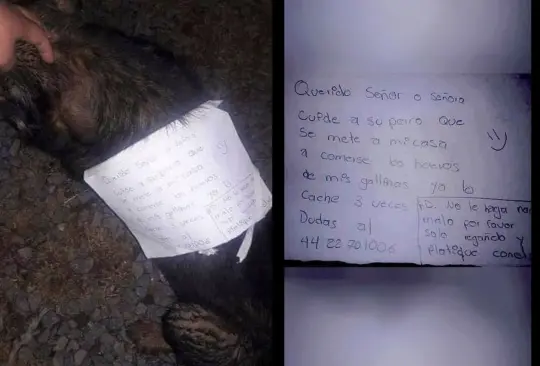 Querido Señor o señora
Cuide a su perro que
Se mete a mi casa
a comerse los huevos
de mis gallinas yo lo
Cache 3 veces
Dudas al
44 22 201006
PD. No le haga na
malo por favor
solo regañelo y
platique